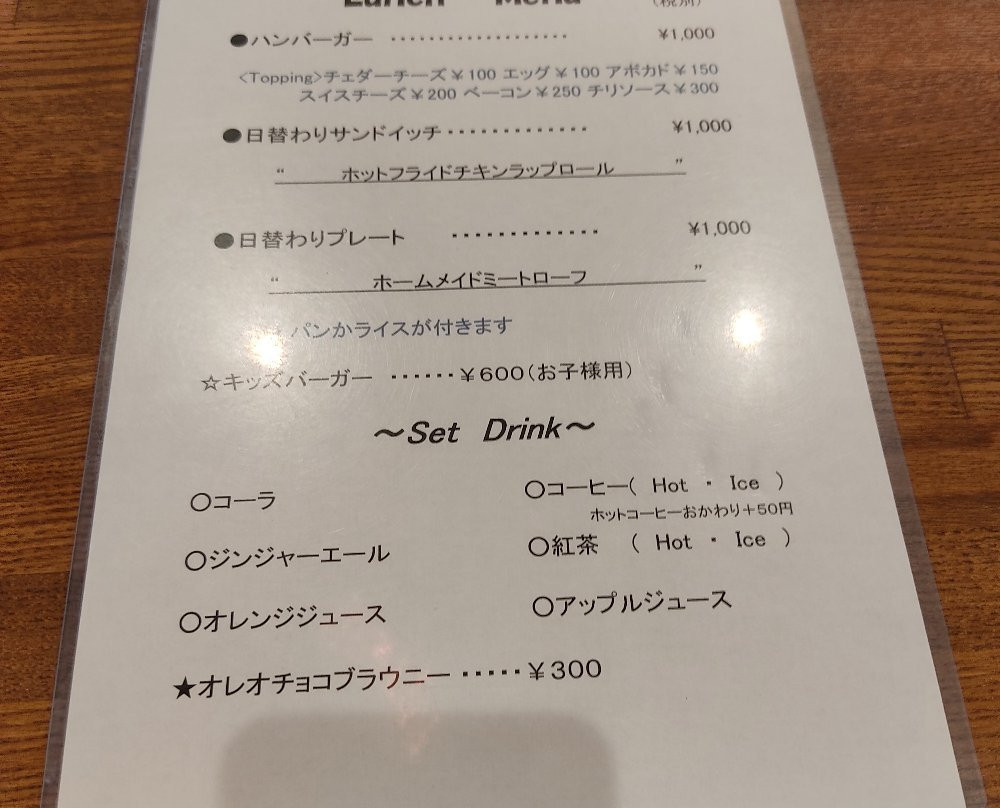 Lunch Menu (税別)
●ハンバーガー ・・・・・・・・・・・・・・・・・・・ ¥1,000
<Topping>チェダーチーズ¥100 エッグ¥100 アボカド¥150
スイスチーズ¥200 ベーコン¥250 チリソース¥300
●日替わりサンドイッチ・・・・・・・・・・・・・ ¥1,000
“ ホットフライドチキンラップロール ”
●日替わりプレート ・・・・・・・・・・・・・ ¥1,000
“ ホームメイドミートローフ ”
パンかライスが付きます
☆キッズバーガー ・・・・・・¥600(お子様用)
～Set Drink～
○コーラ ○コーヒー( Hot ・ Ice )
ホットコーヒーおかわり+50円
○ジンジャーエール ○紅茶 ( Hot ・ Ice )
○オレンジジュース ○アップルジュース
★オレオチョコブラウニー・・・・・¥300